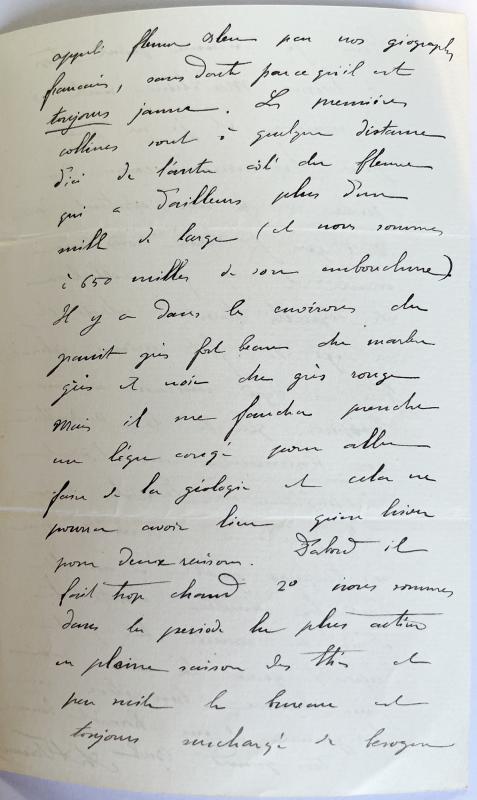 appelé fleuve bleu par nos géographes
français, sans doute parce qu'il est
toujours jaune. Les premières
collines sont à quelque distance
d'ici de l'autre côté du fleuve
qui a d'ailleurs plus d'un
mille de large (et nous sommes
à 650 milles de son embouchure).
Il y a dans les environs du
granit gris fort beau du marbre
gris et noir du grès rouge
mais il me faudra prendre
un léger congé pour aller
faire de la géologie et cela ne
pourra avoir lieu qu'en hiver
pour deux raisons. D'abord il
fait trop chaud 2° nous sommes
dans la période la plus active
en pleine saison des thés et
par suite le bureau est
toujours surchargé de besogne